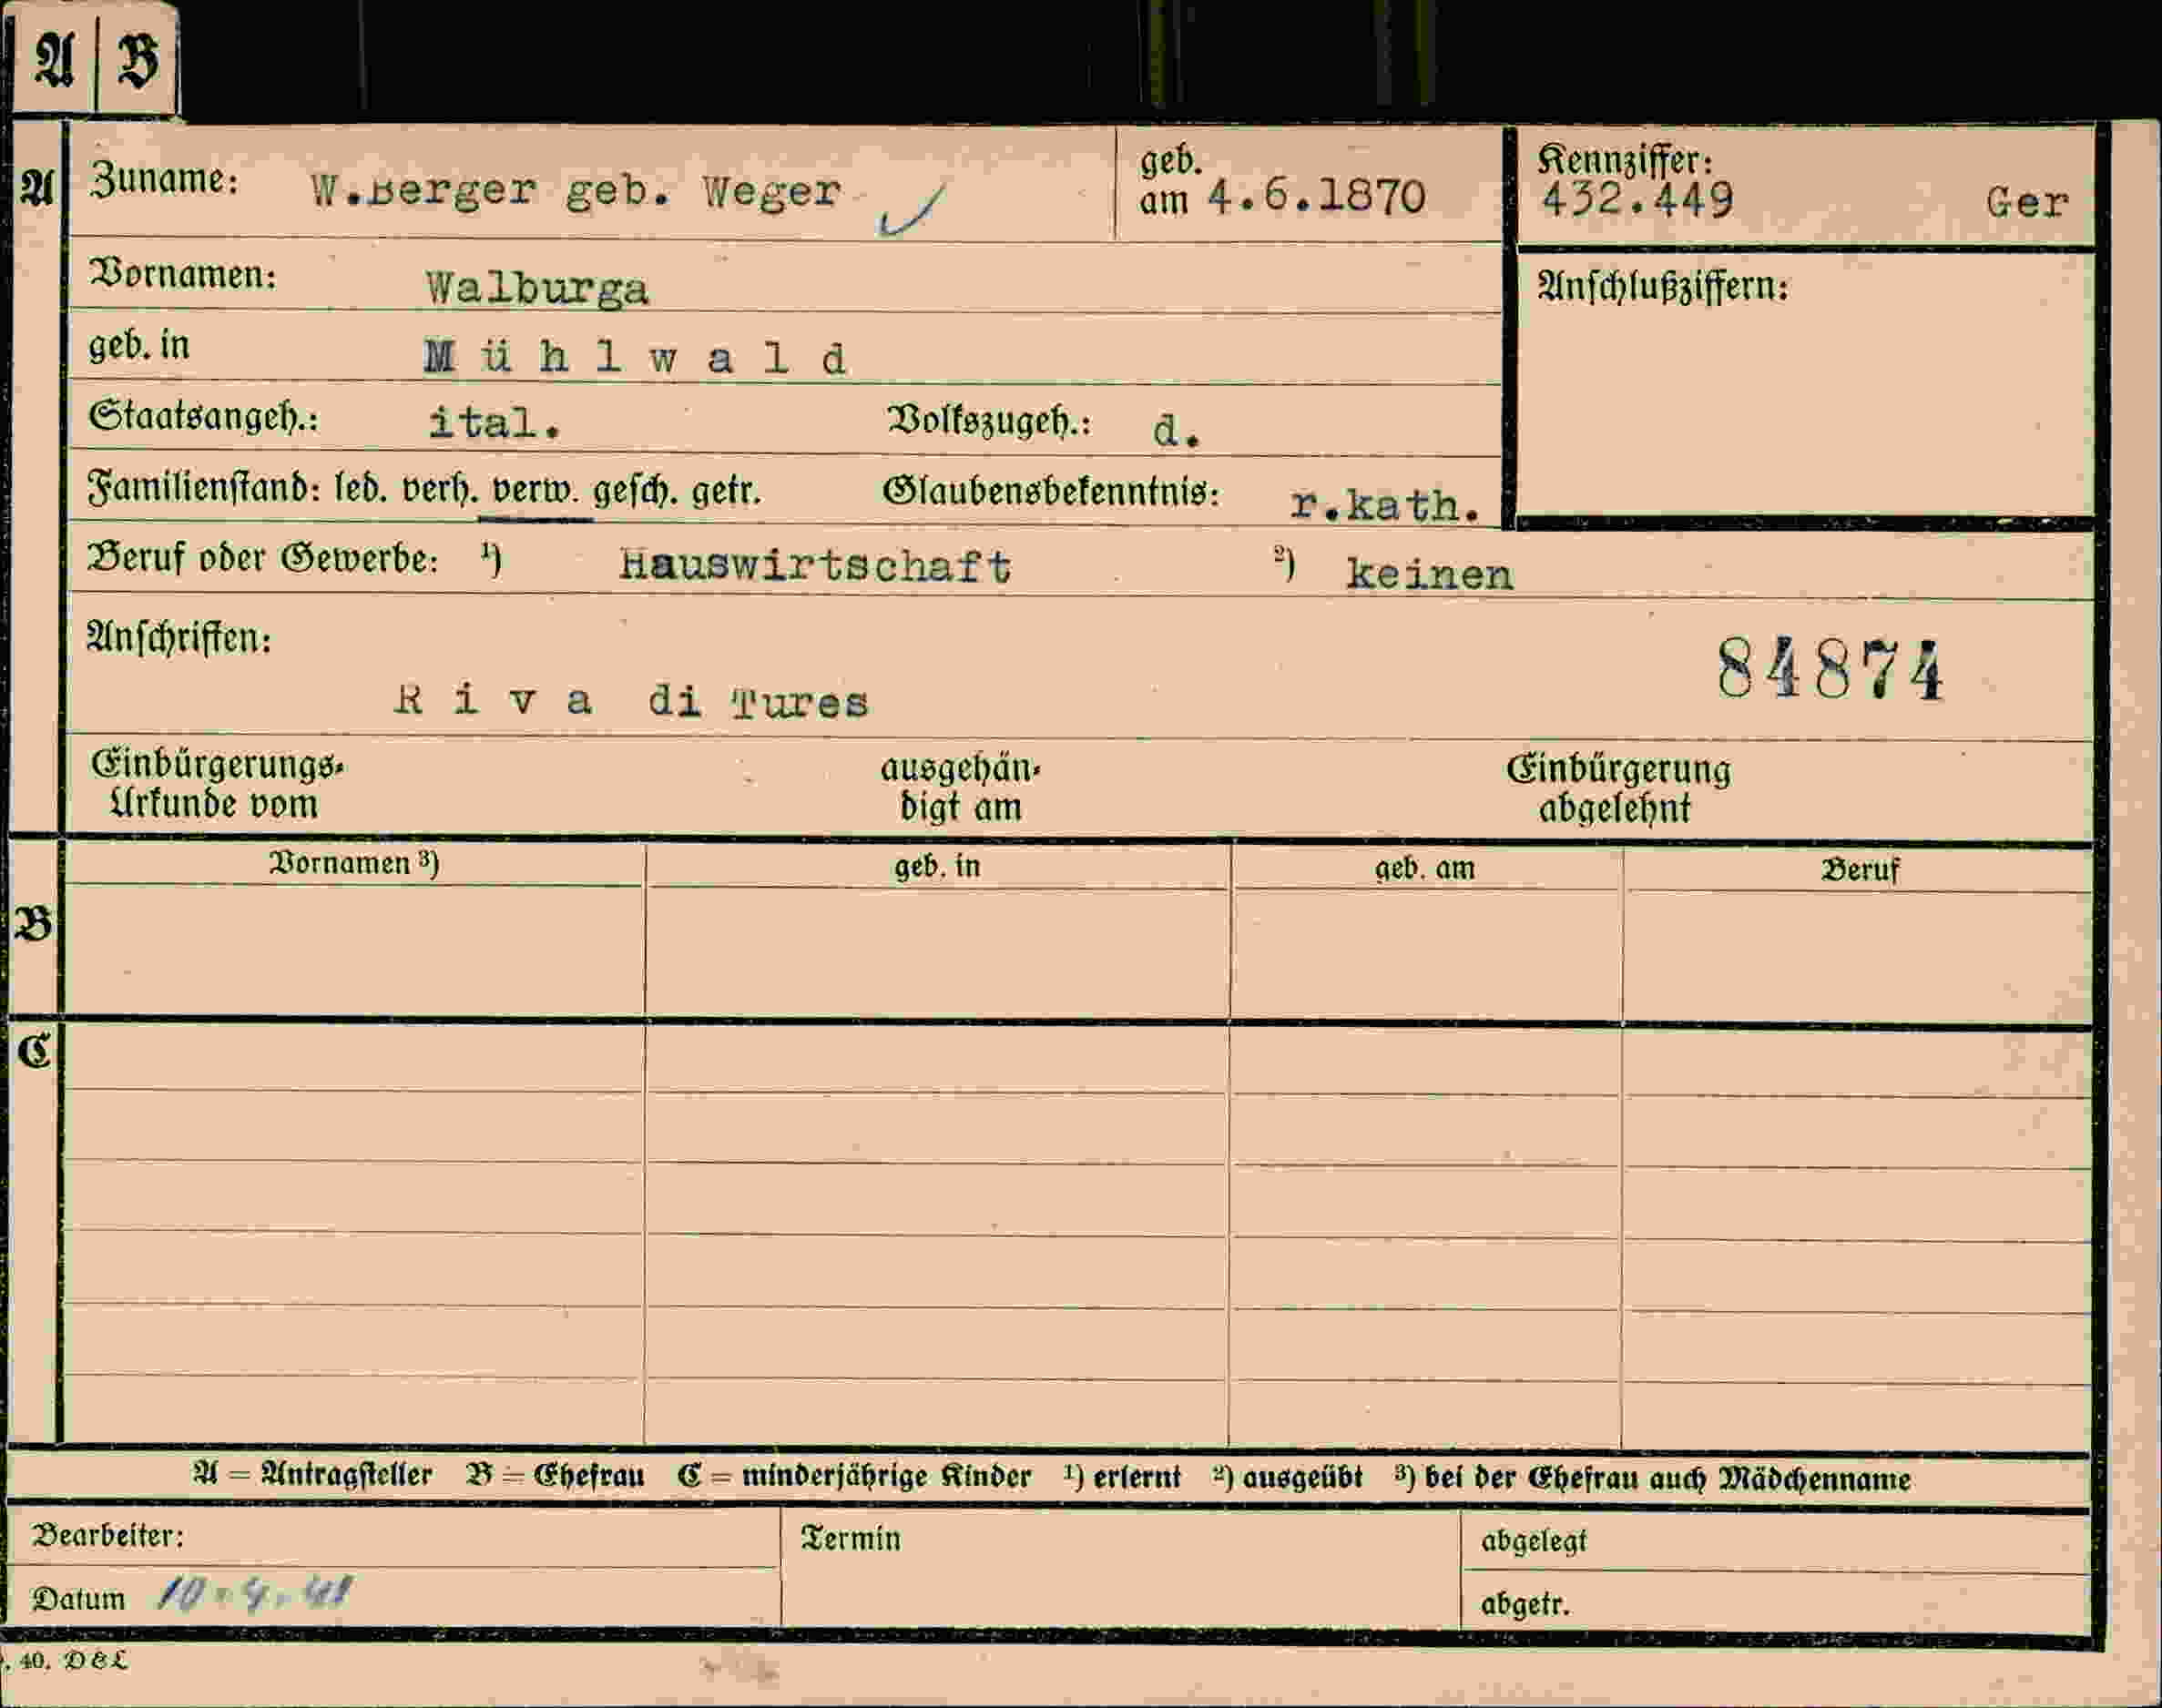 A B
A Zuname: W.Berger geb. Weger geb. am 4.6.1870 Kennziffer: 432.449 Ger
Vornamen: Walburga Anschlußziffern:
geb. in Mühlwald
Staatsangeh.: ital. Volkszugeh.: d.
Familienstand: led. verh. verw. gesch. getr. Glaubensbekenntnis: r.kath.
Beruf oder Gewerbe: ¹) Hauswirtschaft ²) keinen
Anschriften:
84874
Riva di Tures
Einbürgerungs- ausgehän- Einbürgerung
Urkunde vom digt am abgelehnt
Vornamen ³) geb. in geb. am Beruf
B
C
A = Antragsteller B = Ehefrau C = minderjährige Kinder ¹) erlernt ²) ausgeübt ³) bei der Ehefrau auch Mädchenname
Bearbeiter: Termin abgelegt
Datum 10.4.41 abgetr.
. 40. D & L